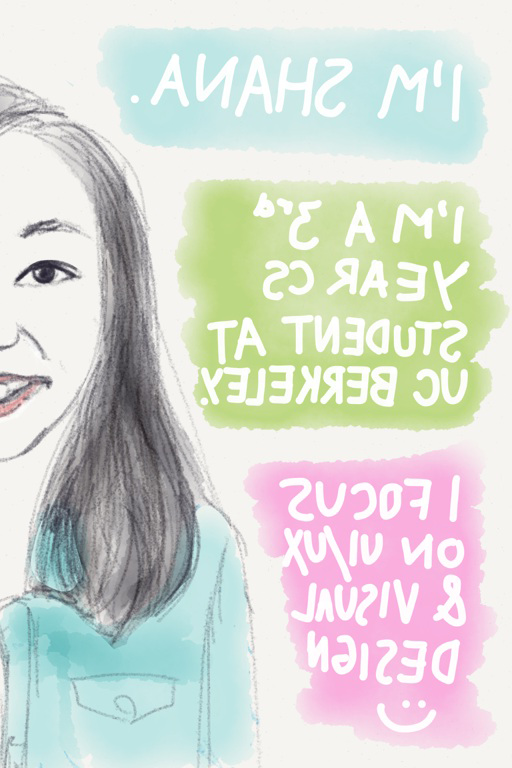 I'M SHANA.
I'M A 3rd
YEAR CS
STUDENT AT
UC BERKELEY.
I FOCUS
ON UI/UX
& VISUAL
DESIGN